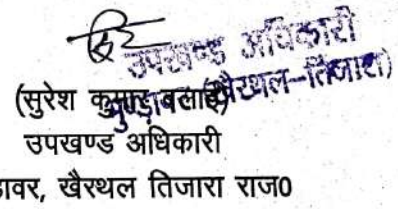 उपखण्ड अधिकारी
मुण्डावर (खैरथल-तिजारा)
(सुरेश कुमार बलाई)
उपखण्ड अधिकारी
डावर, खैरथल तिजारा राज0